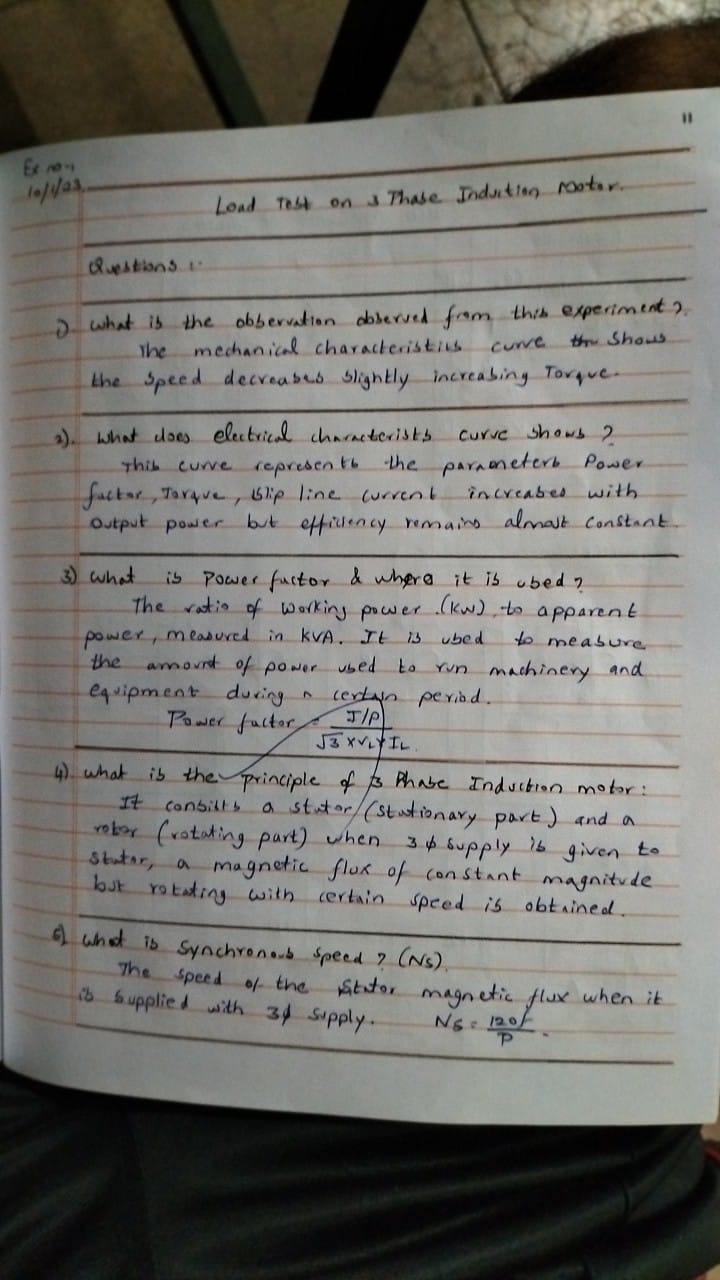 11
Ex no:1
10/1/23
Load Test on 3 Phase Induction Motor.
Questions :-
1). What is the observation observed from this experiment?
The mechanical characteristics curve Shows
the Speed decreases slightly increasing Torque.
2). What does electrical characterists curve shows ?
This curve represents the parameters Power
factor, Torque, Slip line current increases with
Output power but efficiency remains almost constant.
3) What is Power factor & where it is used ?
The ratio of working power (kW), to apparent
power, measured in kVA. It is used to measure
the amount of power used to run machinery and
equipment during a certain period.
Power factor = I/P
√3 x VL x IL.
4). What is the principle of 3 Phase Induction motor:
It consists a stator (stationary part) and a
rotor (rotating part) when 3 ϕ supply is given to
Stator, a magnetic flux of constant magnitude
but rotating with certain speed is obtained.
5) What is Synchronous speed ? (Ns).
The speed of the Stator magnetic flux when it
is supplied with 3ϕ supply. Ns = 120f
P .